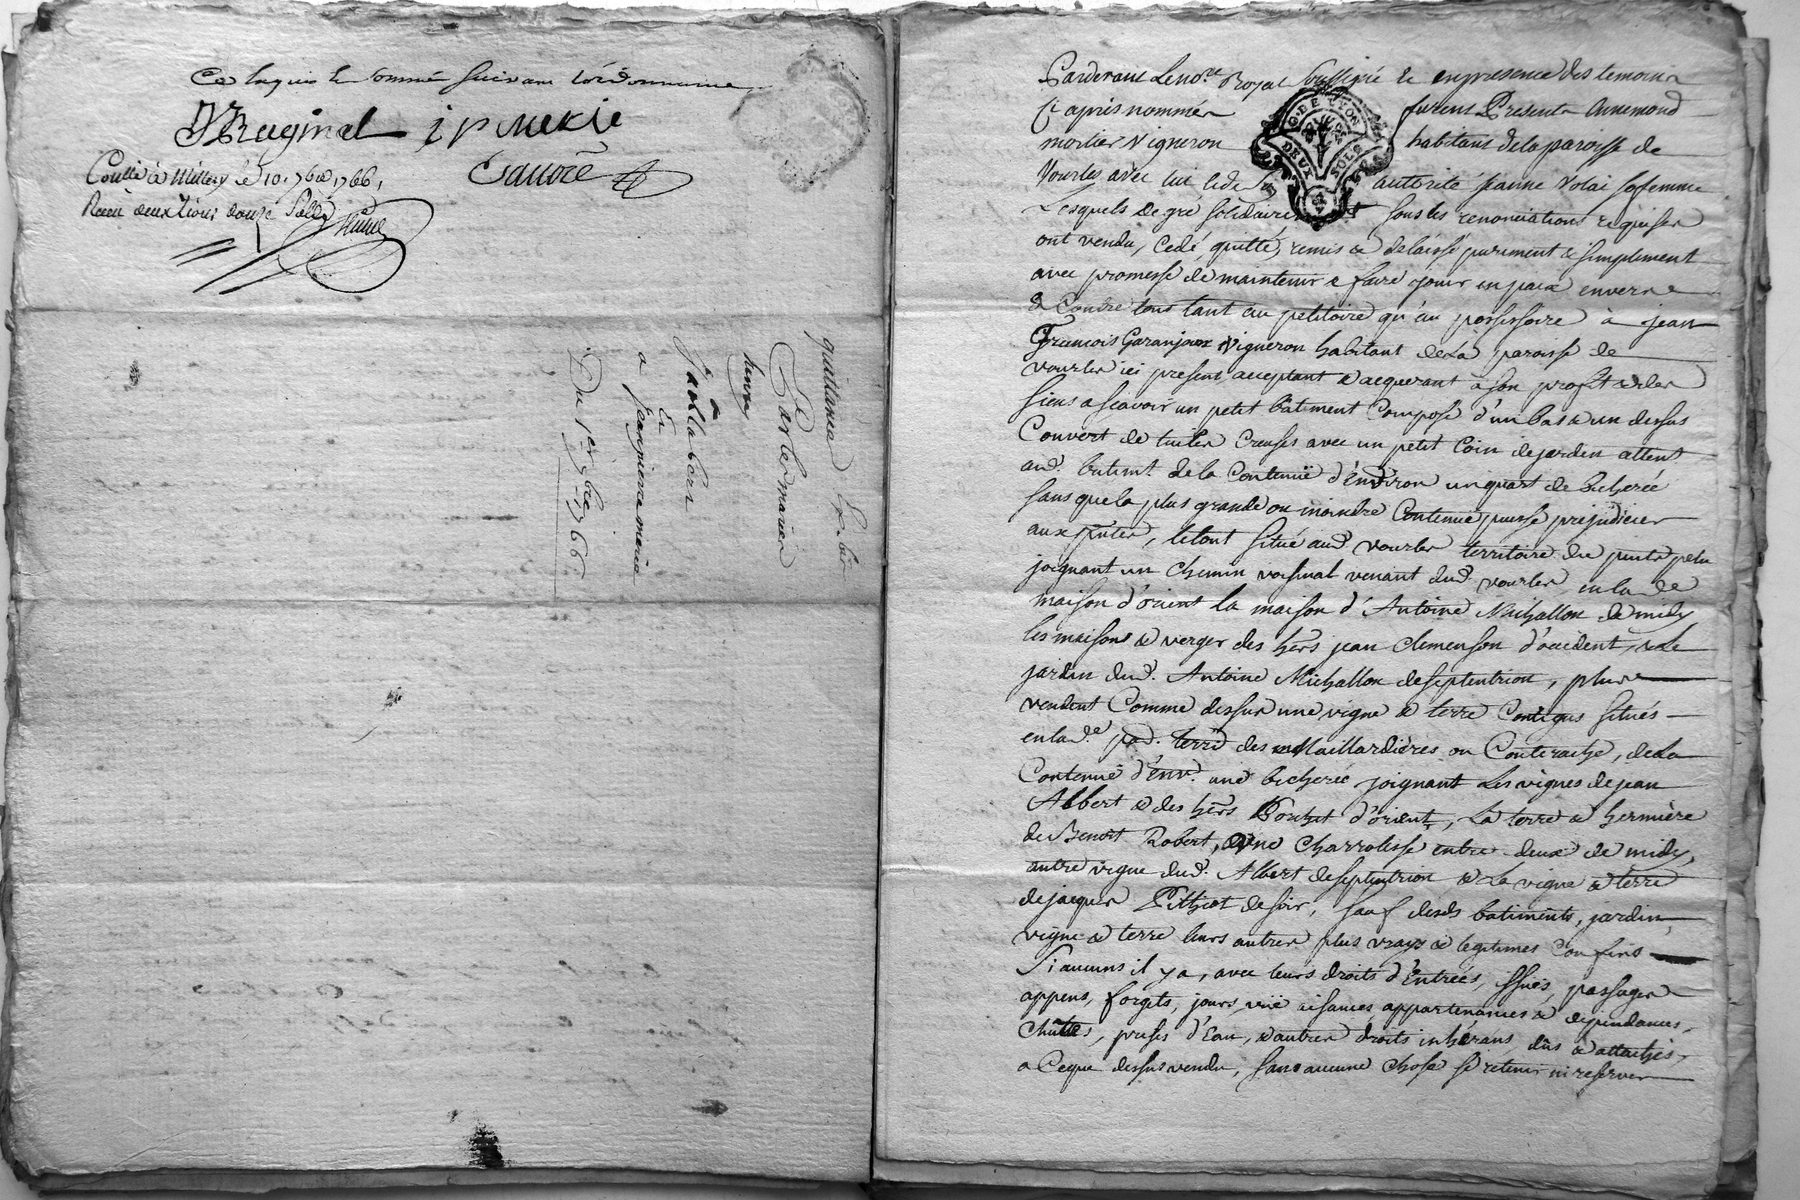 Ce requis le sommé suivant l'ordonnance
JMaginet j p merie
Sauzée
Conllé à Millery le 10. 7bre 1766,
Reçu deux livres douze sols
quittance
hunra
a
En
a jean pierre merie
Du 1er 7bre 1766
Pardevant Le nore Royal soussigné & en presence des temoins
Ci après nommés furent Presents Annemond
mortier Vigneron habitant de la paroisse de
Vourles avec lui de autorité jeanne Volai sa femme
G. DE LYON
DEUX SOLS
Lesquels de gré solidairement sous les renonciations requises
ont vendu, cedé, quitté, remis & delaissé purement & simplement
avec promesse de maintenir & faire jouir en paix envers &
& Contre tous tant au petitoire qu'au possessoire à jean
François Garanjoux Vigneron habitant de La paroisse de
vourles ici present, acceptant & acquerant à son profit & des
siens a scavoir un petit bâtiment Composé d'un bas & un dessus
Couvert de tuiles Creuses avec un petit Coin de jardin attent
aud. batimt. de la Contenüe d'Environ un quart de bicherée
sans que la plus grande ou moindre Contenüe puisse prejudicier
aux ptes, le tout situé aud. vourles territoire du
joignant un Chemin voisinal venant dud. vourles en la de
maison d'orient la maison d'Antoine Michallon de midy
les maisons & verger des hers jean Clemenson d'occident, & le
jardin dud. Antoine Michallon de septentrion, plus
vendent Comme dessus une vigne & terre Contigus situés
en lade. pad. terre des Maillardières ou Conterache, de La
Contenüe d'env. une bicherée joignant Les vignes de jean
Albert & des hers Bouchet d'orient, La terre & hermière
de Benoit Robert, & une Charrolesse entre deux de midy,
autre vigne dud. Albert de septentrion & La vigne & terre
de jacques Pithiot de soir, sauf desds batiments, jardin,
vigne & terre leurs autres plus vrays & legitimes Confins
si aucuns il y a, avec leurs droits d'Entrées, issües, passages
appens, forgets, jours, vüe aisances, appartenances & dependances,
Chûttes, prises d'Eau, & autres droits inhérans, dûs & attachés,
a Ceque dessus vendu, sans aucune Chose se retenir ni reserver